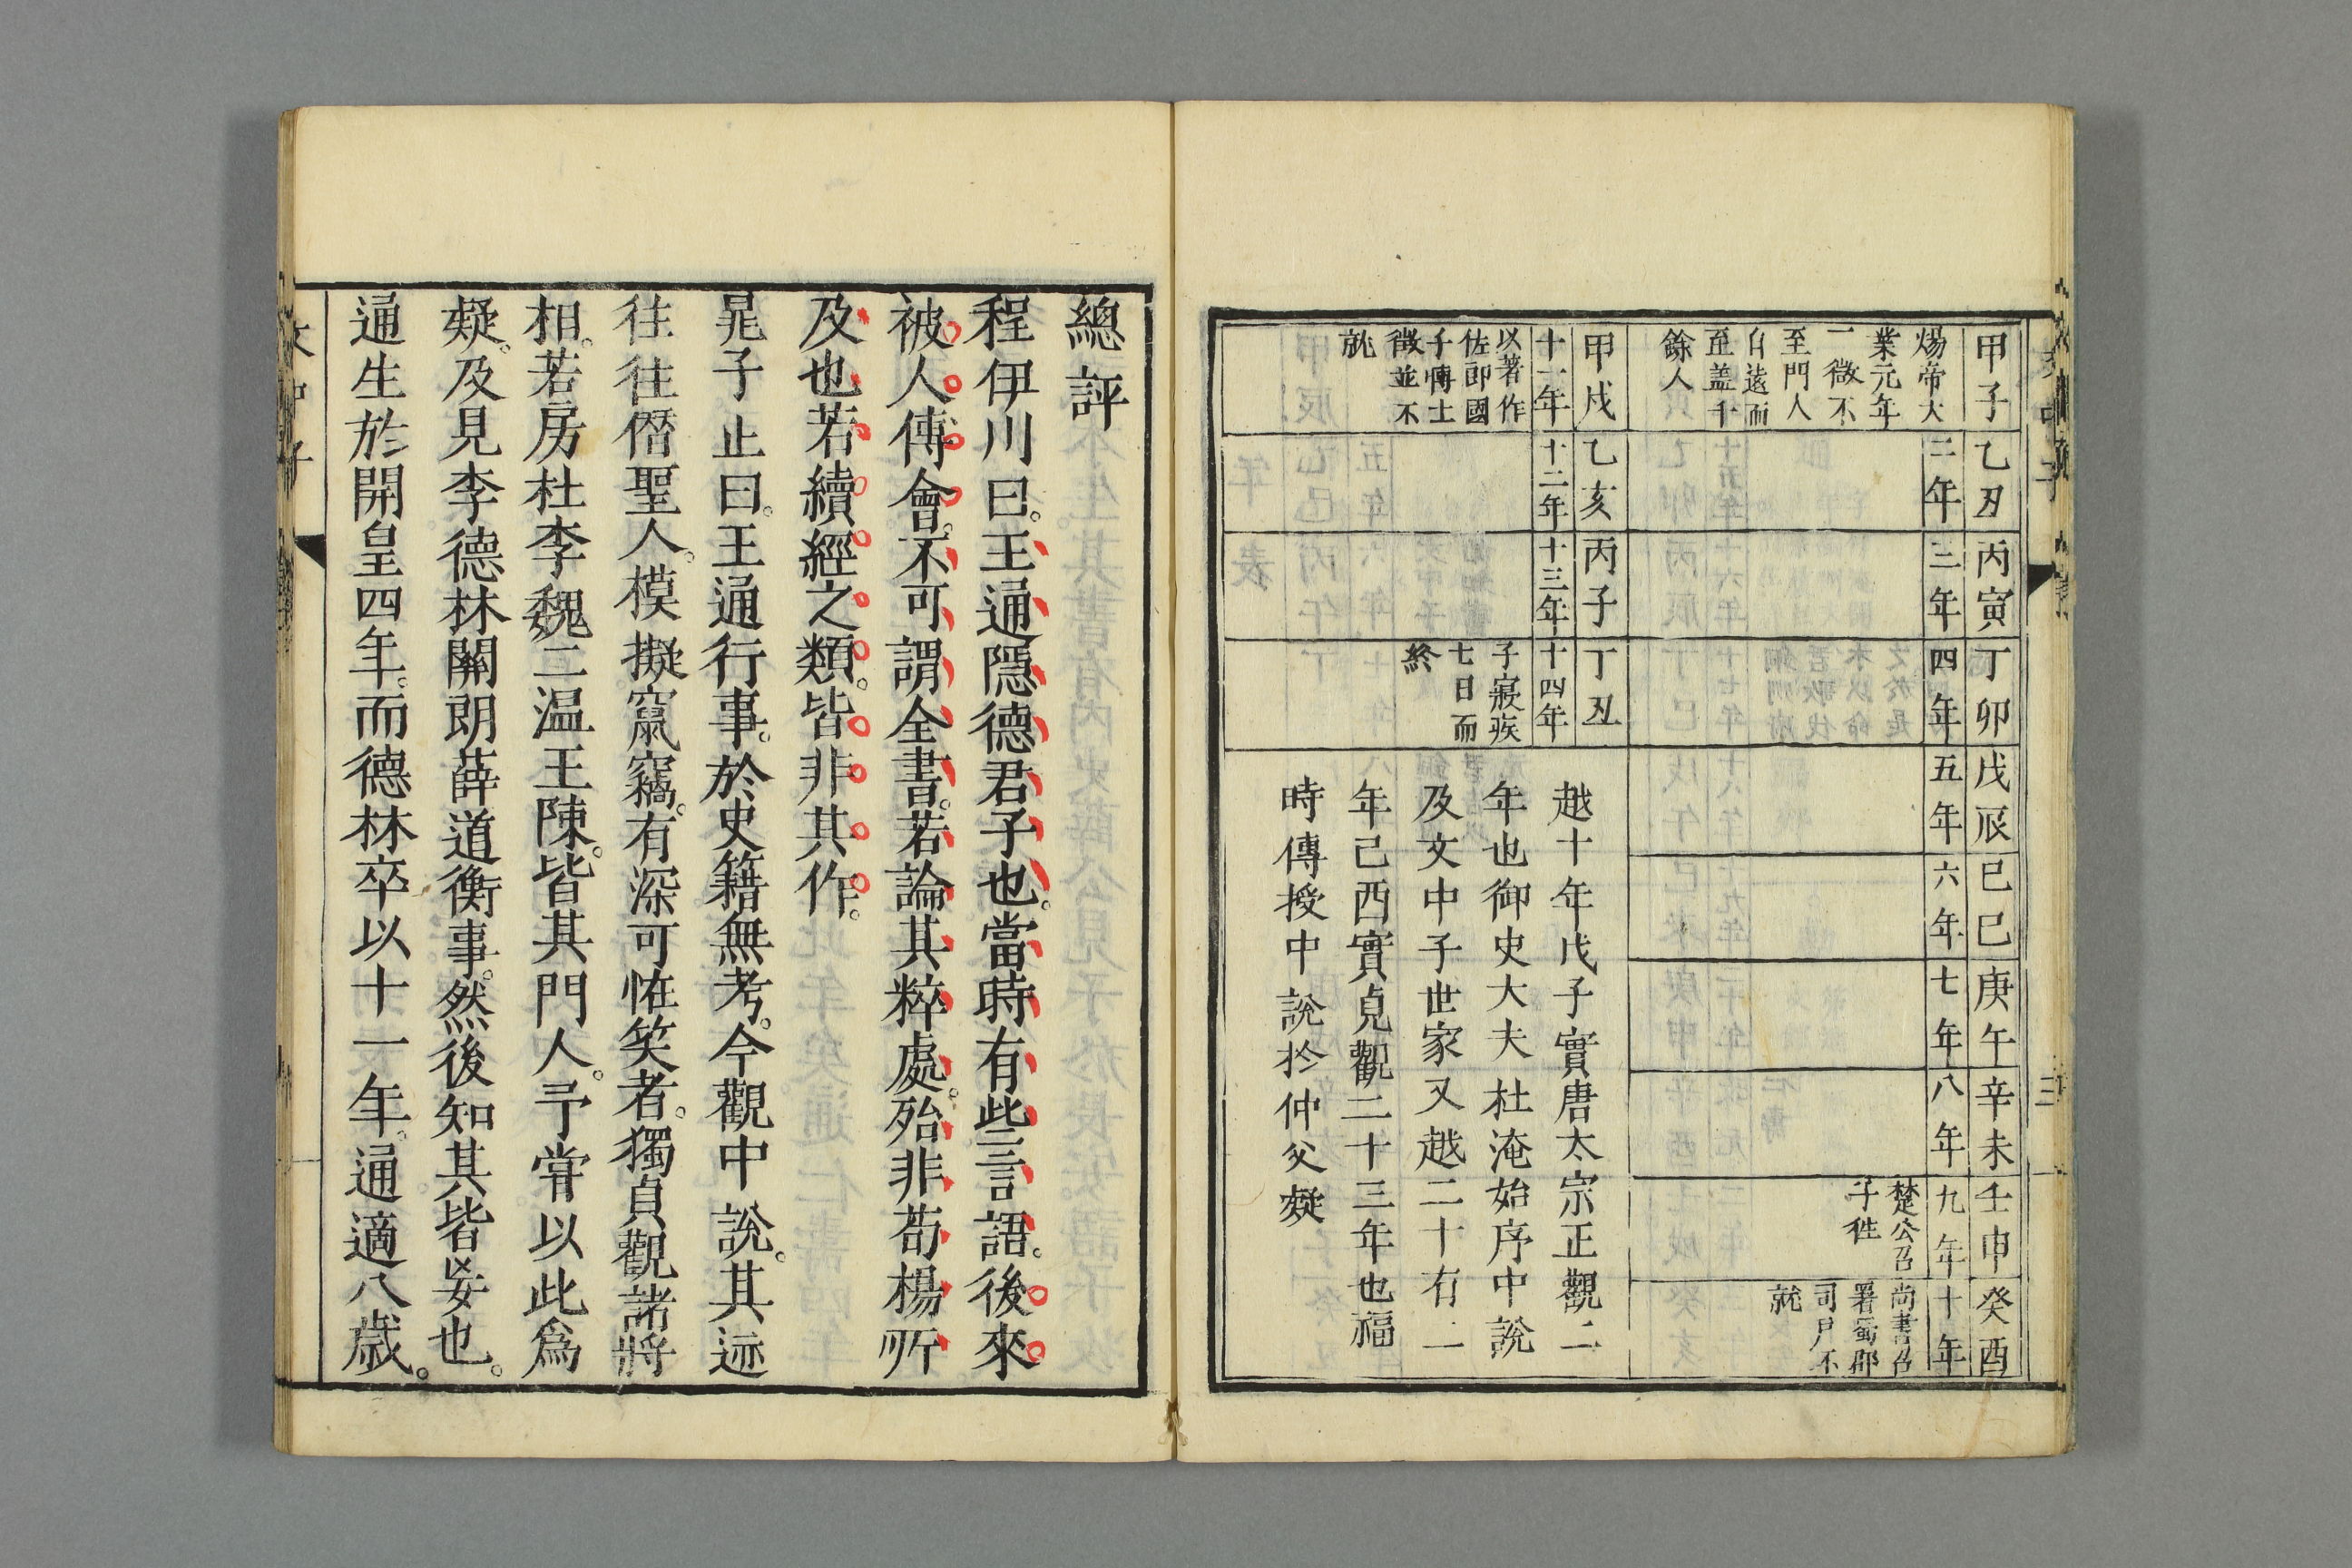 甲子
乙丑
丙寅
丁卯
戊辰
己巳
庚午
辛未
壬申
癸酉
煬帝大
業元年
一徵不
至門人
自遠而
至蓋千
餘人
二年
三年
四年
五年
六年
七年
八年
九年
楚公召
子徃
十年
尚書召
署蜀郡
司戶不
就
甲戌
乙亥
丙子
丁丑
十一年
以著作
佐郎國
子博士
徵並不
就
十二年
十三年
十四年
子寢疾
七日而
終
越十年戊子實唐太宗正觀二
年也御史大夫杜淹始序中說
及文中子世家又越二十有二
年己酉實貞觀二十三年也福
時傳授中說於仲父凝
三
總評
程伊川曰。王通隱德君子也。當時有此言語。後來
被人傅會。不可謂全書。若論其粹處。殆非荀楊所
及也。若續經之類。皆非其作。
晁子止曰。王通行事。於史籍無考。今觀中說。其迹
往往僭聖人。模擬竄竊。有深可怪笑者。獨貞觀諸將
相。若房杜李魏二温王陳。皆其門人。予甞以此爲
疑。及見李德林關朗薛道衡事。然後知其皆妄也。
通生於開皇四年。而德林卒以十一年。通適八歲。
文中子